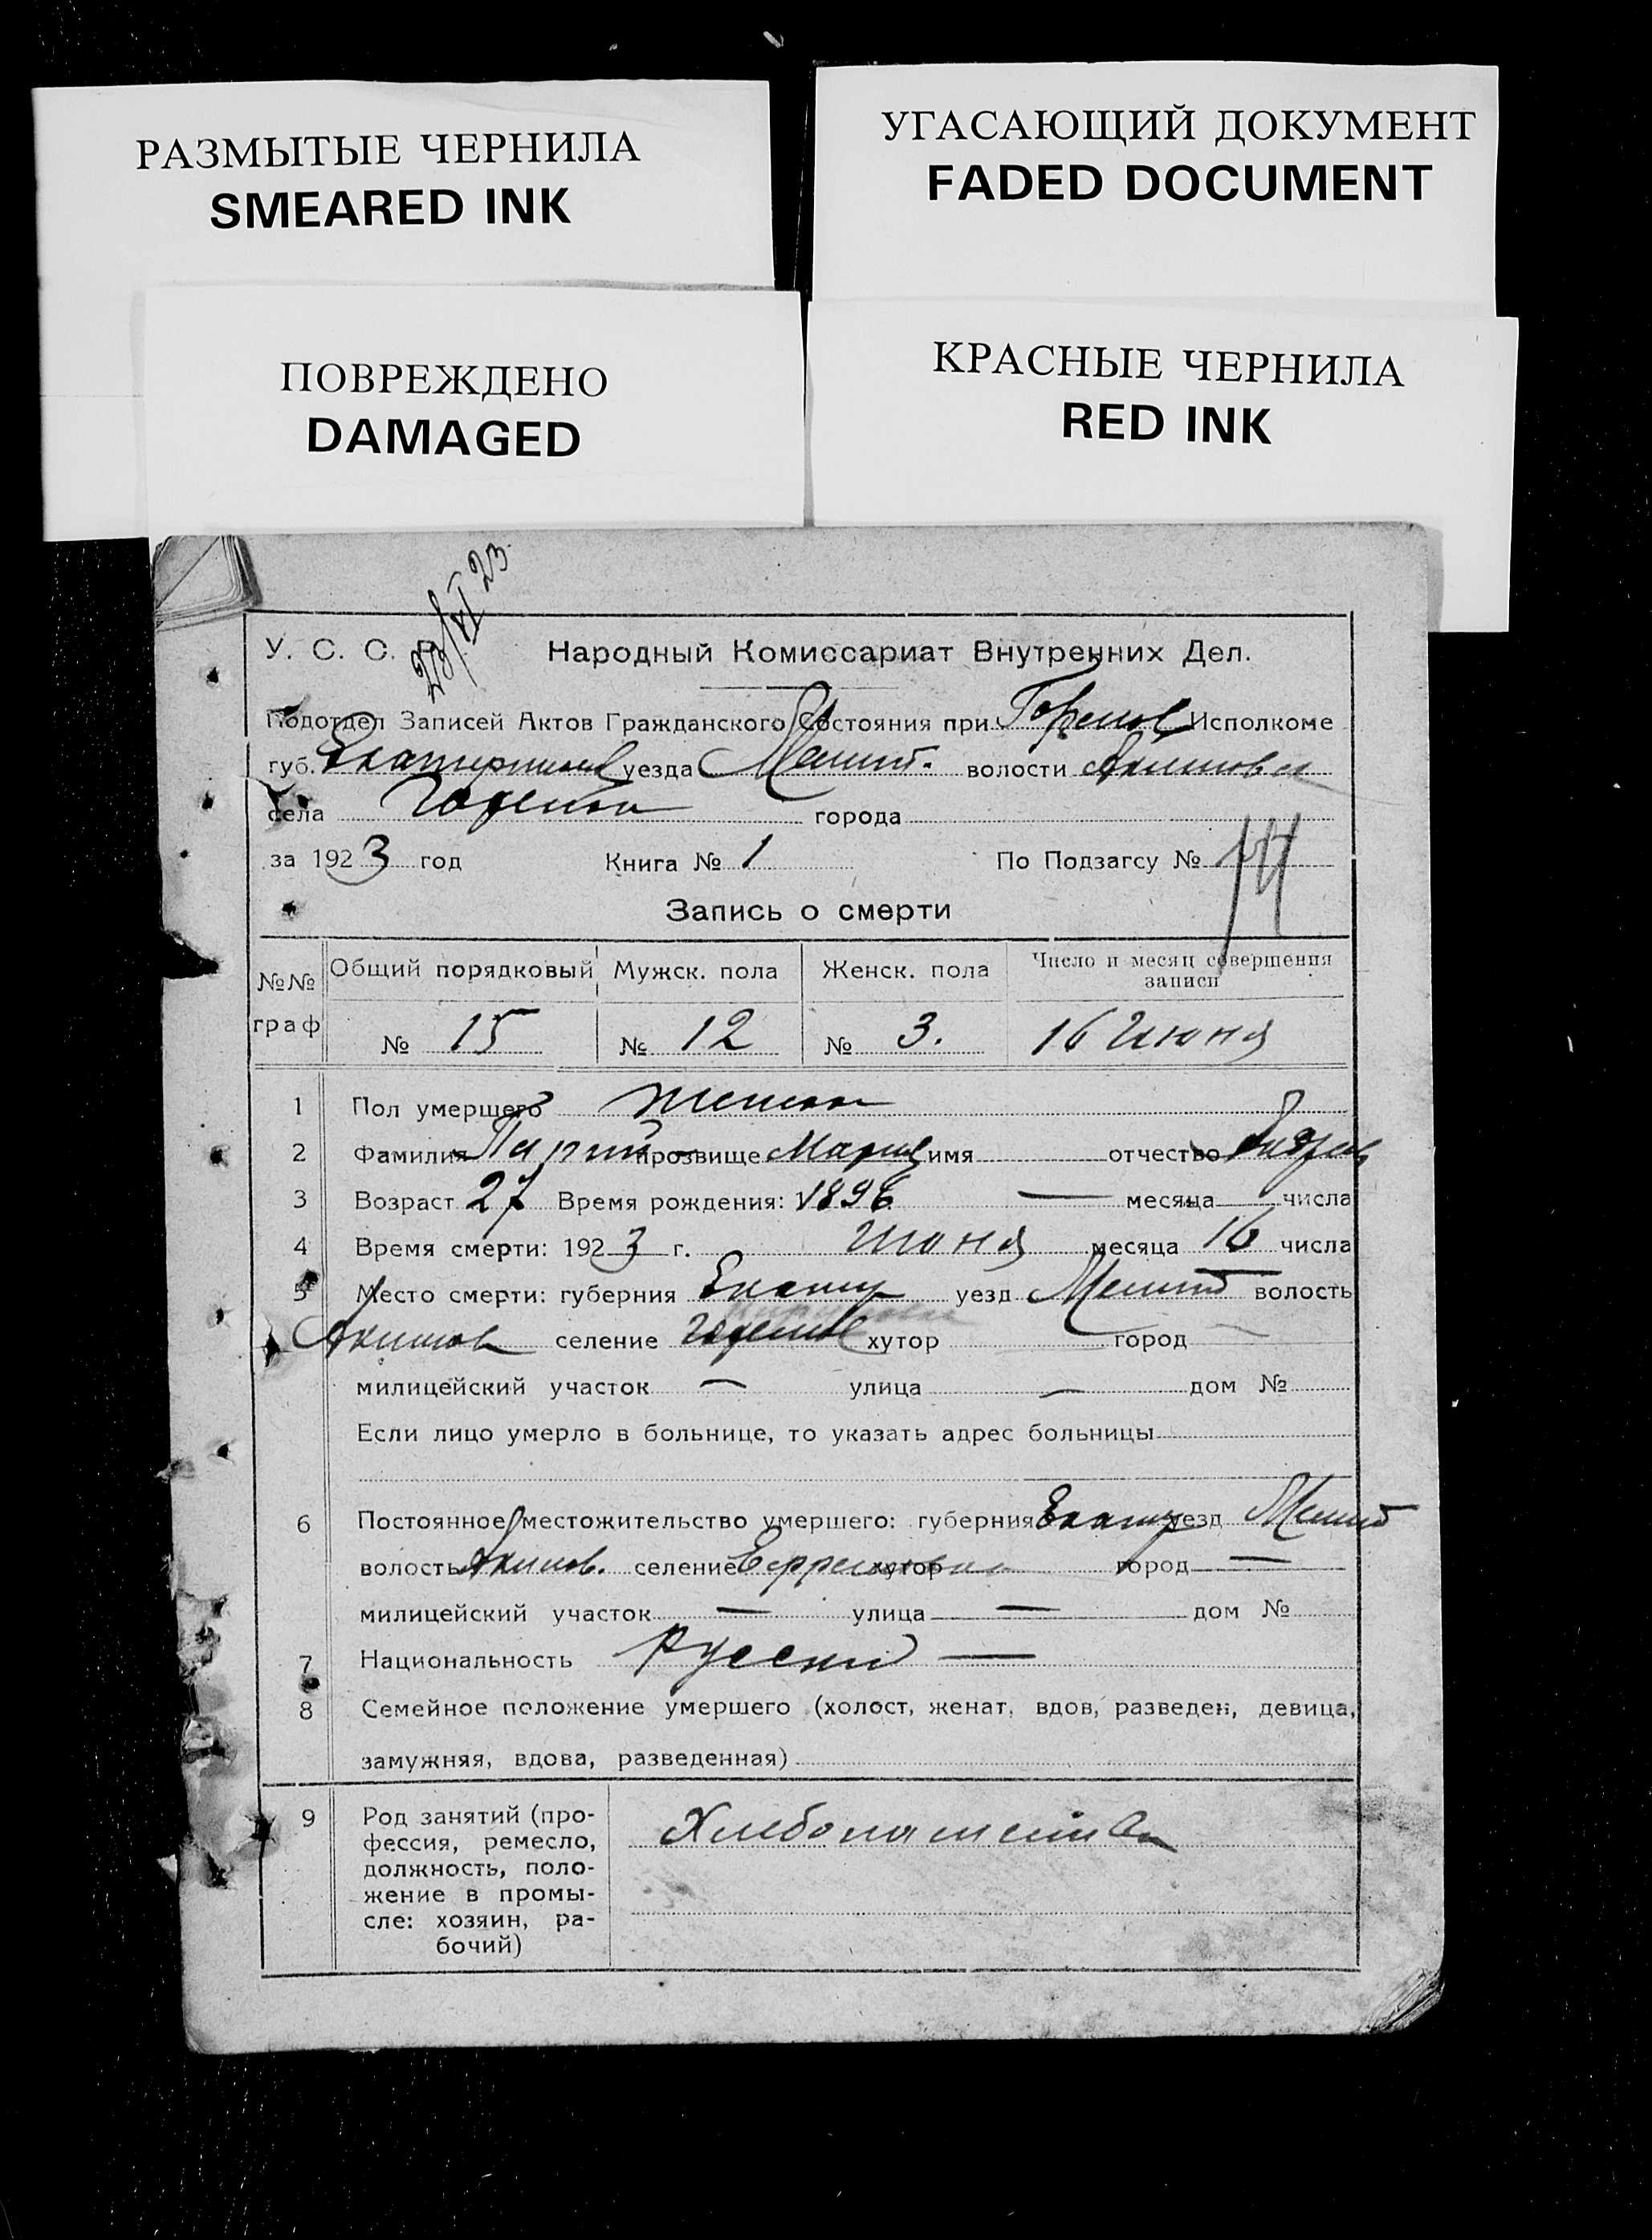 РАЗМЫТЫЕ ЧЕРНИЛА
SMEARED INK
УГАСАЮЩИЙ ДОКУМЕНТ
FADED DOCUMENT
ПОВРЕЖДЕНО
DAMAGED
КРАСНЫЕ ЧЕРНИЛА
RED INK
23/VI 23
У. С. С. Р. Народный Комиссариат Внутренних Дел.
Подотдел Записей Актов Гражданского Состояния при Исполкоме
губ. уезда Мелит. волости Акимовск
села города
за 1923 год Книга № 1 По Подзагсу №
Запись о смерти
№№ граф Общий порядковый Мужск. пола Женск. пола Число и месяц совершения записи
№ 15 № 12 № 3. 16 Июня
1 Пол умершего женск
2 Фамилия прозвище Мария имя отчество
3 Возраст 27 Время рождения: 1896 — месяца числа
4 Время смерти: 1923 г. Июня месяца 16 числа
5 Место смерти: губерния Екатер уезд Мелит волость
Акимов селение хутор город —
милицейский участок — улица — дом №
Если лицо умерло в больнице, то указать адрес больницы
6 Постоянное местожительство умершего: губерния Екатер уезд Мелит
волость Акимов. селение хутор город —
милицейский участок — улица — дом №
7 Национальность Русский —
8 Семейное положение умершего (холост, женат, вдов, разведен, девица,
замужняя, вдова, разведенная)
9 Род занятий (про-
фессия, ремесло,
должность, поло-
жение в промы-
сле: хозяин, ра-
бочий)
Хлебопашество